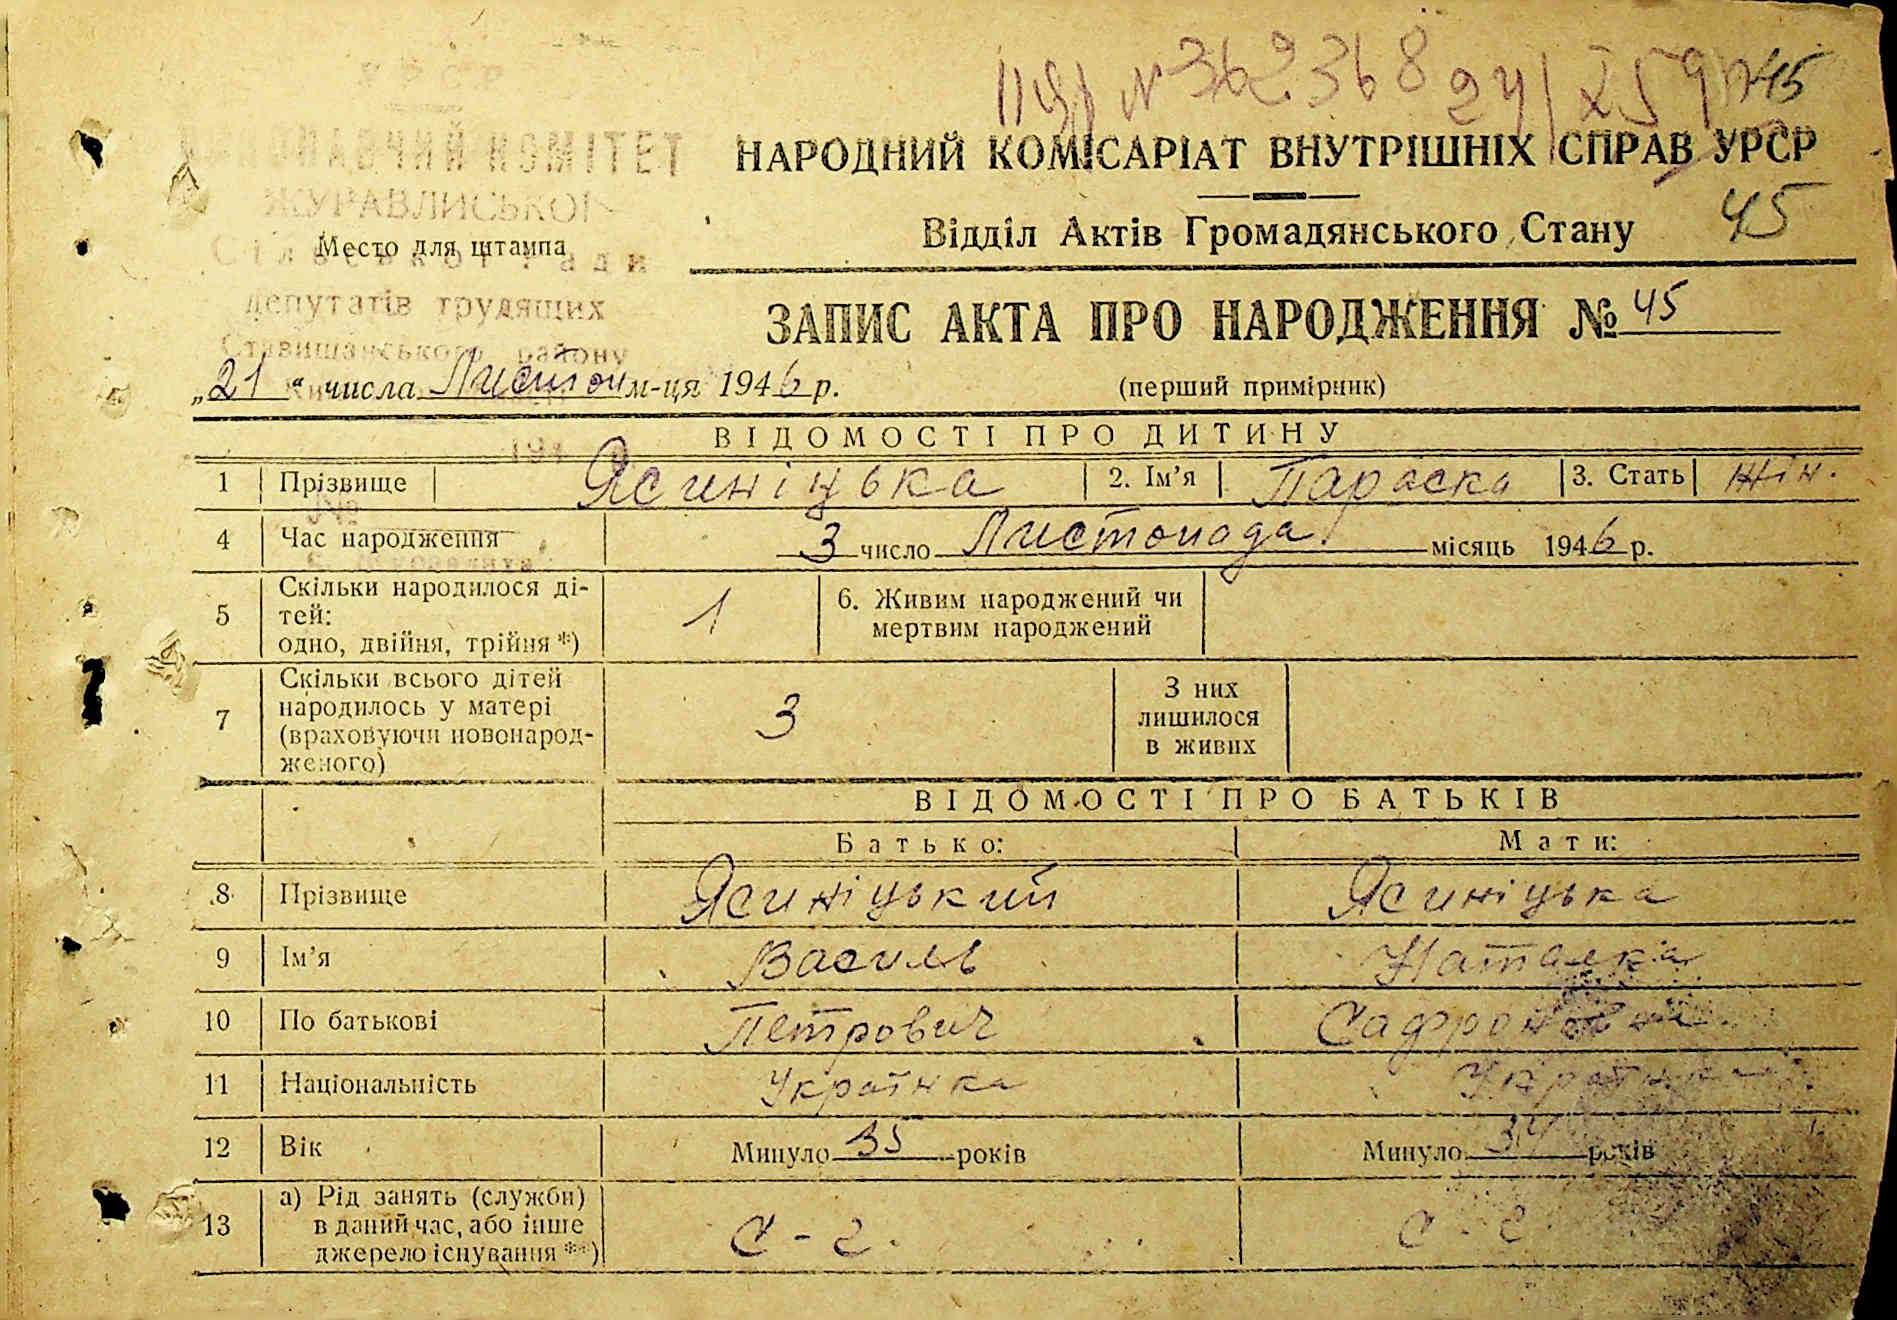 УРСР
ВИКОНАВЧИЙ КОМІТЕТ
ЖУРАВЛИСЬКОЇ
Сільської Ради
депутатів трудящих
Ставищанського району
194
№
Место для штампа
№ 362368 24/
45
НАРОДНИЙ КОМІСАРІАТ ВНУТРІШНІХ СПРАВ УРСР
Відділ Актів Громадянського Стану
45
ЗАПИС АКТА ПРО НАРОДЖЕННЯ № 45
„21“ числа Листоп м-ця 1946 р. (перший примірник)
ВІДОМОСТІ ПРО ДИТИНУ
1 Прізвище Ясиніцька 2. Ім’я Параска 3. Стать Жін.
4 Час народження 3 число Листопада місяць 1946 р.
5 Скільки народилося ді-
тей:
одно, двійня, трійня *) 1 6. Живим народжений чи
мертвим народжений
7 Скільки всього дітей
народилось у матері
(враховуючи новонарод-
женого) 3 З них
лишилося
в живих
ВІДОМОСТІ ПРО БАТЬКІВ
Батько: Мати:
8 Прізвище Ясиніцький Ясиніцька
9 Ім’я Василь Наталка
10 По батькові Петрович
11 Національність Українка Українка
12 Вік Минуло 35 років Минуло 34 років
13 а) Рід занять (служби)
в даний час, або інше
джерело існування **) С-г. С-г